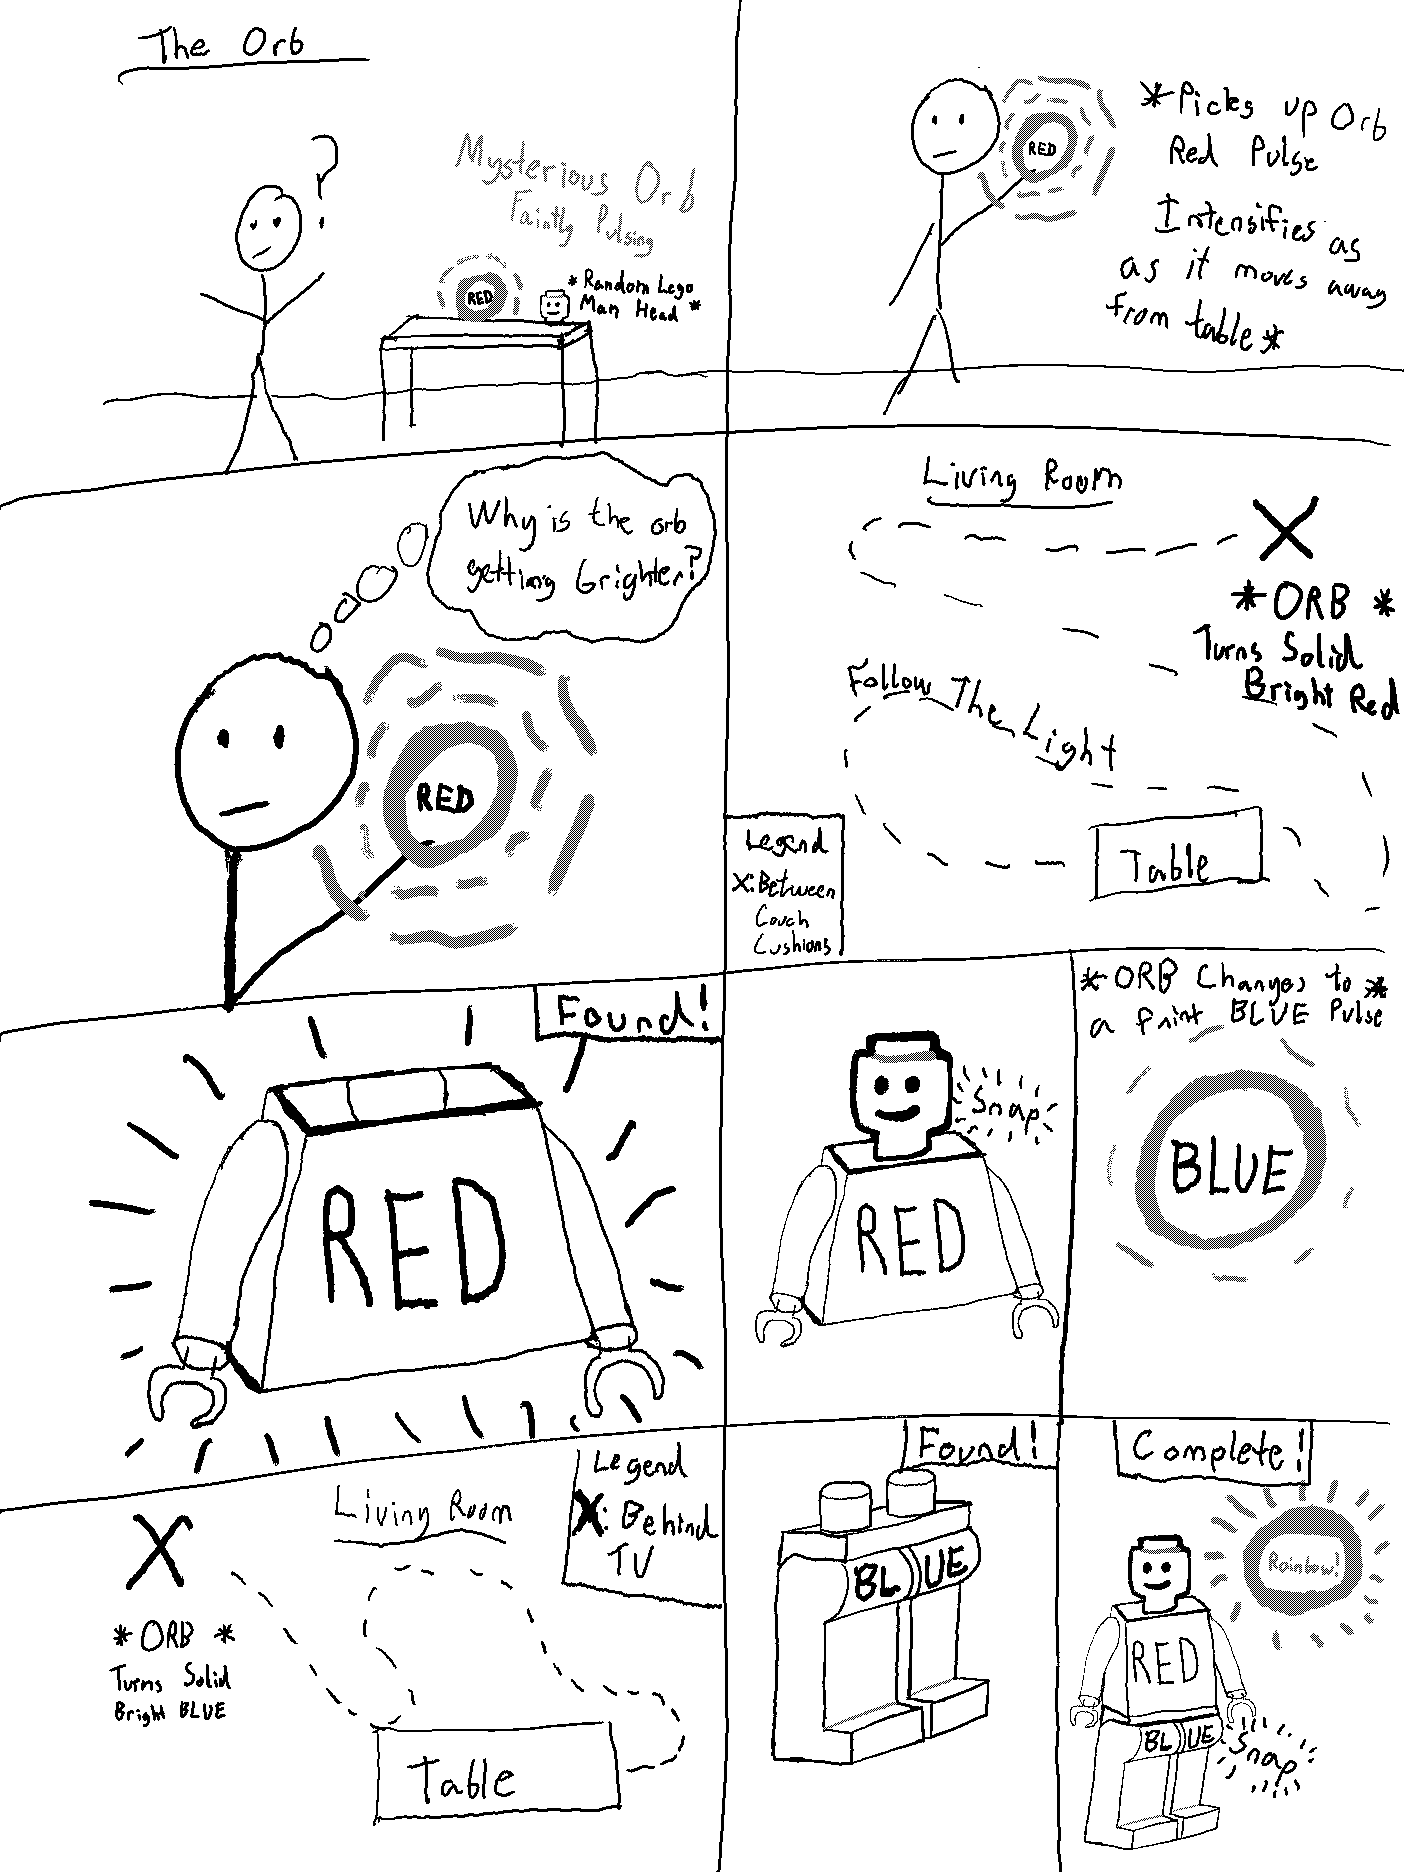 The Orb
?
Mysterious Orb
Faintly Pulsing
RED
* Random Lego
Man Head *
RED
*Picks up Orb
Red Pulse
Intensifies as
as it moves away
from table*
Why is the orb
getting brighter?
RED
Living Room
X
*ORB *
Turns Solid
Bright Red
Follow The Light
Table
Legend
X: Between
Couch
Cushions
Found!
RED
Snap
RED
*ORB Changes to *
a faint BLUE Pulse
BLUE
Legend
X: Behind
TV
Living Room
X
*ORB *
Turns Solid
Bright BLUE
Table
Found!
BLUE
Complete!
Rainbow!
RED
BLUE
Snap